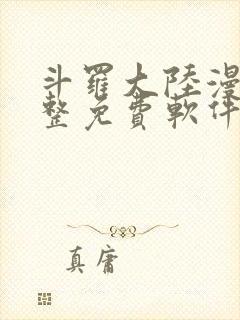 斗羅大陸漫
整免費軟件
真庸